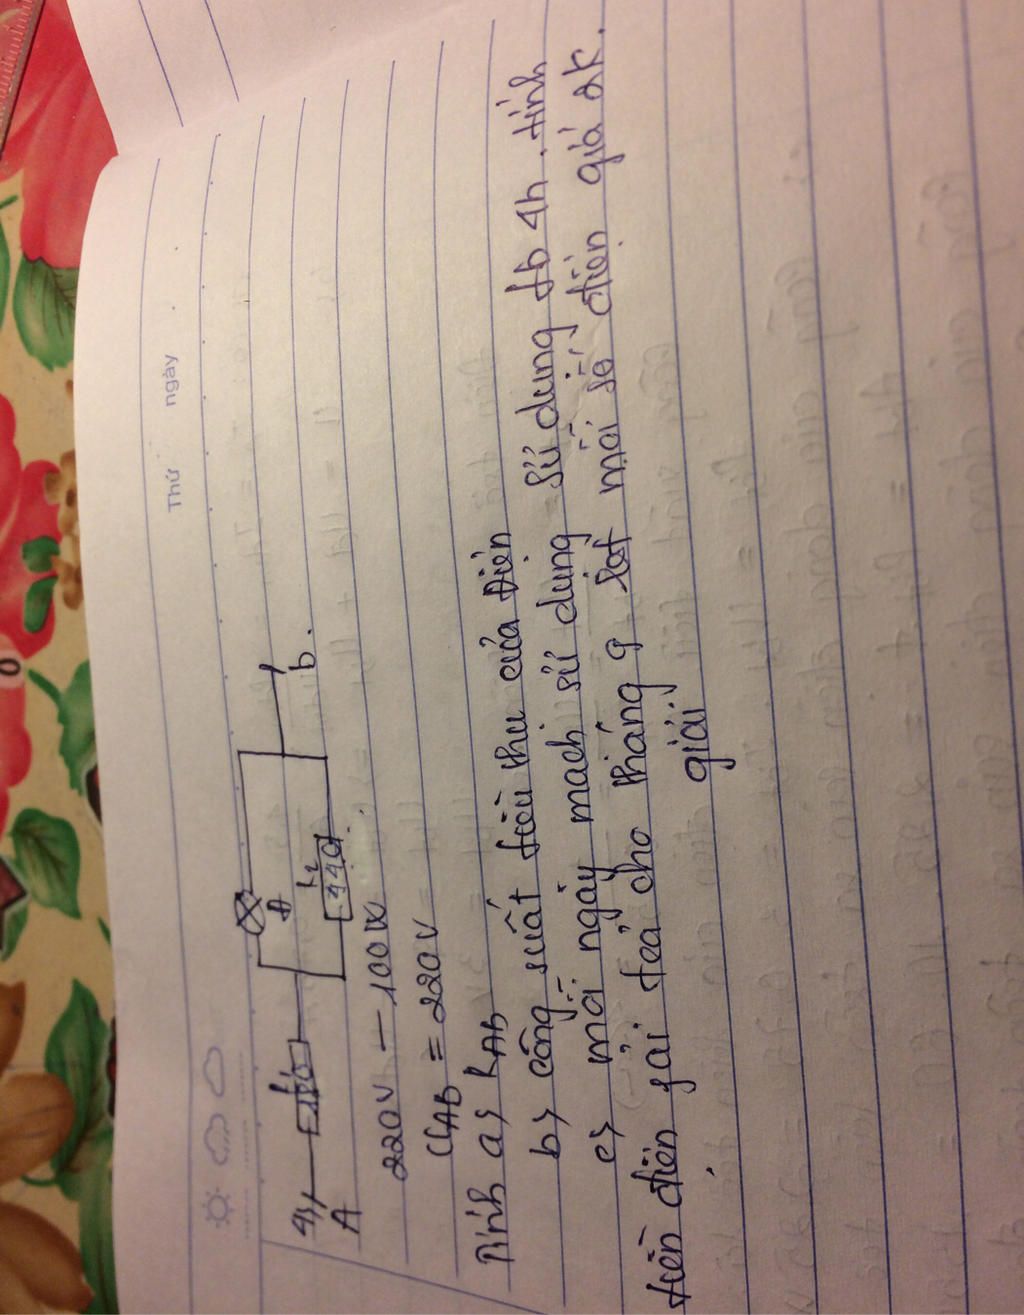 Thứ ngày
4)
R1
Đ
R2
440
A
b.
220V - 100W
UAB = 220V
Tính a) RAB
b) công suất tiêu thu của Điện
c) mỗi ngày mach sử dung sử dung tb 4h. tính
tiền điện fải trả cho tháng 9 mỗi số điện giá 2K.
giải